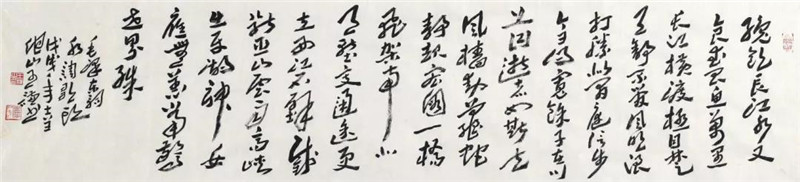 纔飲長江水又
食武昌魚萬里
長江橫渡極目楚
天舒不管風吹浪
打勝似閑庭信步
今日得寬餘子在川
上曰逝者如斯夫
風檣動龜蛇
靜起宏圖一橋
飛架南北
天塹變通途更
立西江石壁截
斷巫山雲雨高峽
出平湖神女
應無恙當驚
世界殊
毛澤東詞
水調歌頭
戊戌年
山書